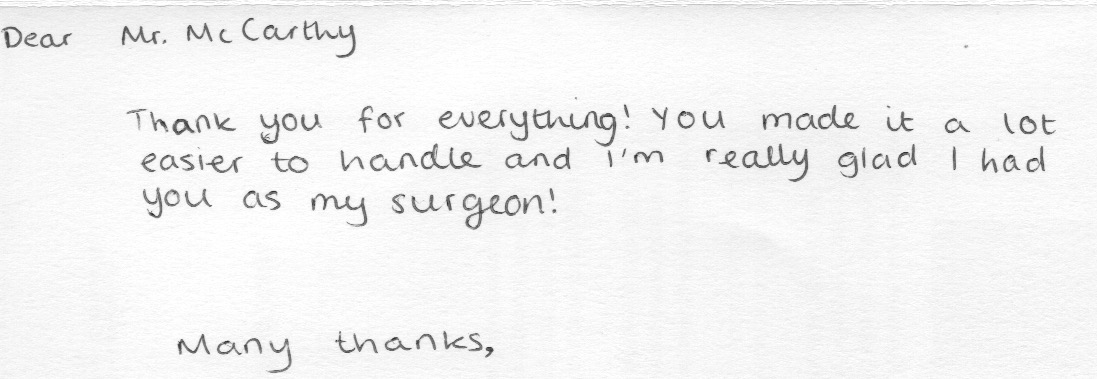 Dear Mr. McCarthy
Thank you for everything! You made it a lot
easier to handle and I'm really glad I had
you as my surgeon!
Many thanks,